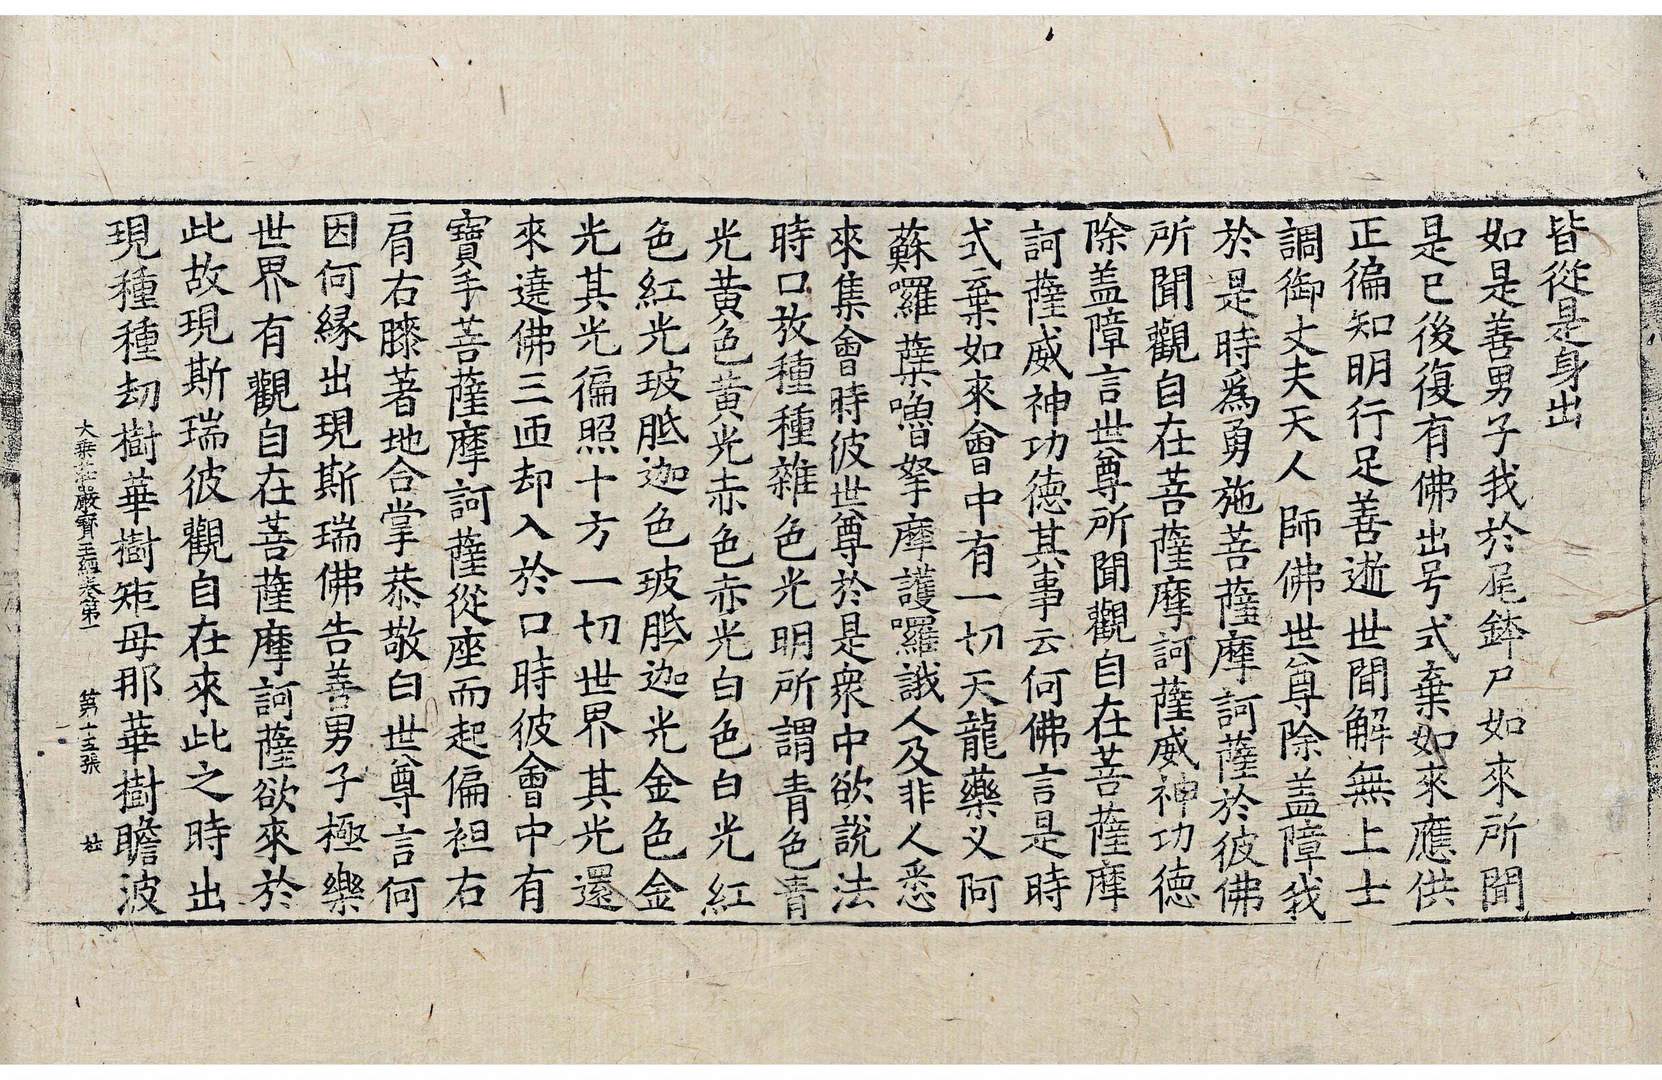 皆從是身出
如是善男子我於尾鉢尸如來所聞
是已後復有佛出号式棄如來應供
正徧知明行足善逝世間解無上士
調御丈夫天人師佛世尊除盖障我
於是時爲勇施菩薩摩訶薩於彼佛
所聞觀自在菩薩摩訶薩威神功德
除盖障言世尊所聞觀自在菩薩摩
訶薩威神功德其事云何佛言是時
式棄如來會中有一切天龍藥义阿
蘇囉蘖嚕拏摩護囉誐人及非人悉
來集會時彼世尊於是衆中欲說法
時口放種種雜色光明所謂青色青
光黄色黄光赤色赤光白色白光紅
色紅光玻胝迦色玻胝迦光金色金
光其光徧照十方一切世界其光還
來遶佛三匝却入於口時彼會中有
寶手菩薩摩訶薩從座而起偏袒右
肩右膝著地合掌恭敬白世尊言何
因何緣出現斯瑞佛告善男子極樂
世界有觀自在菩薩摩訶薩欲來於
此故現斯瑞彼觀自在來此之時出
現種種劫樹華樹矩母那華樹瞻波
大乘莊嚴寶王經卷第一 第十五張